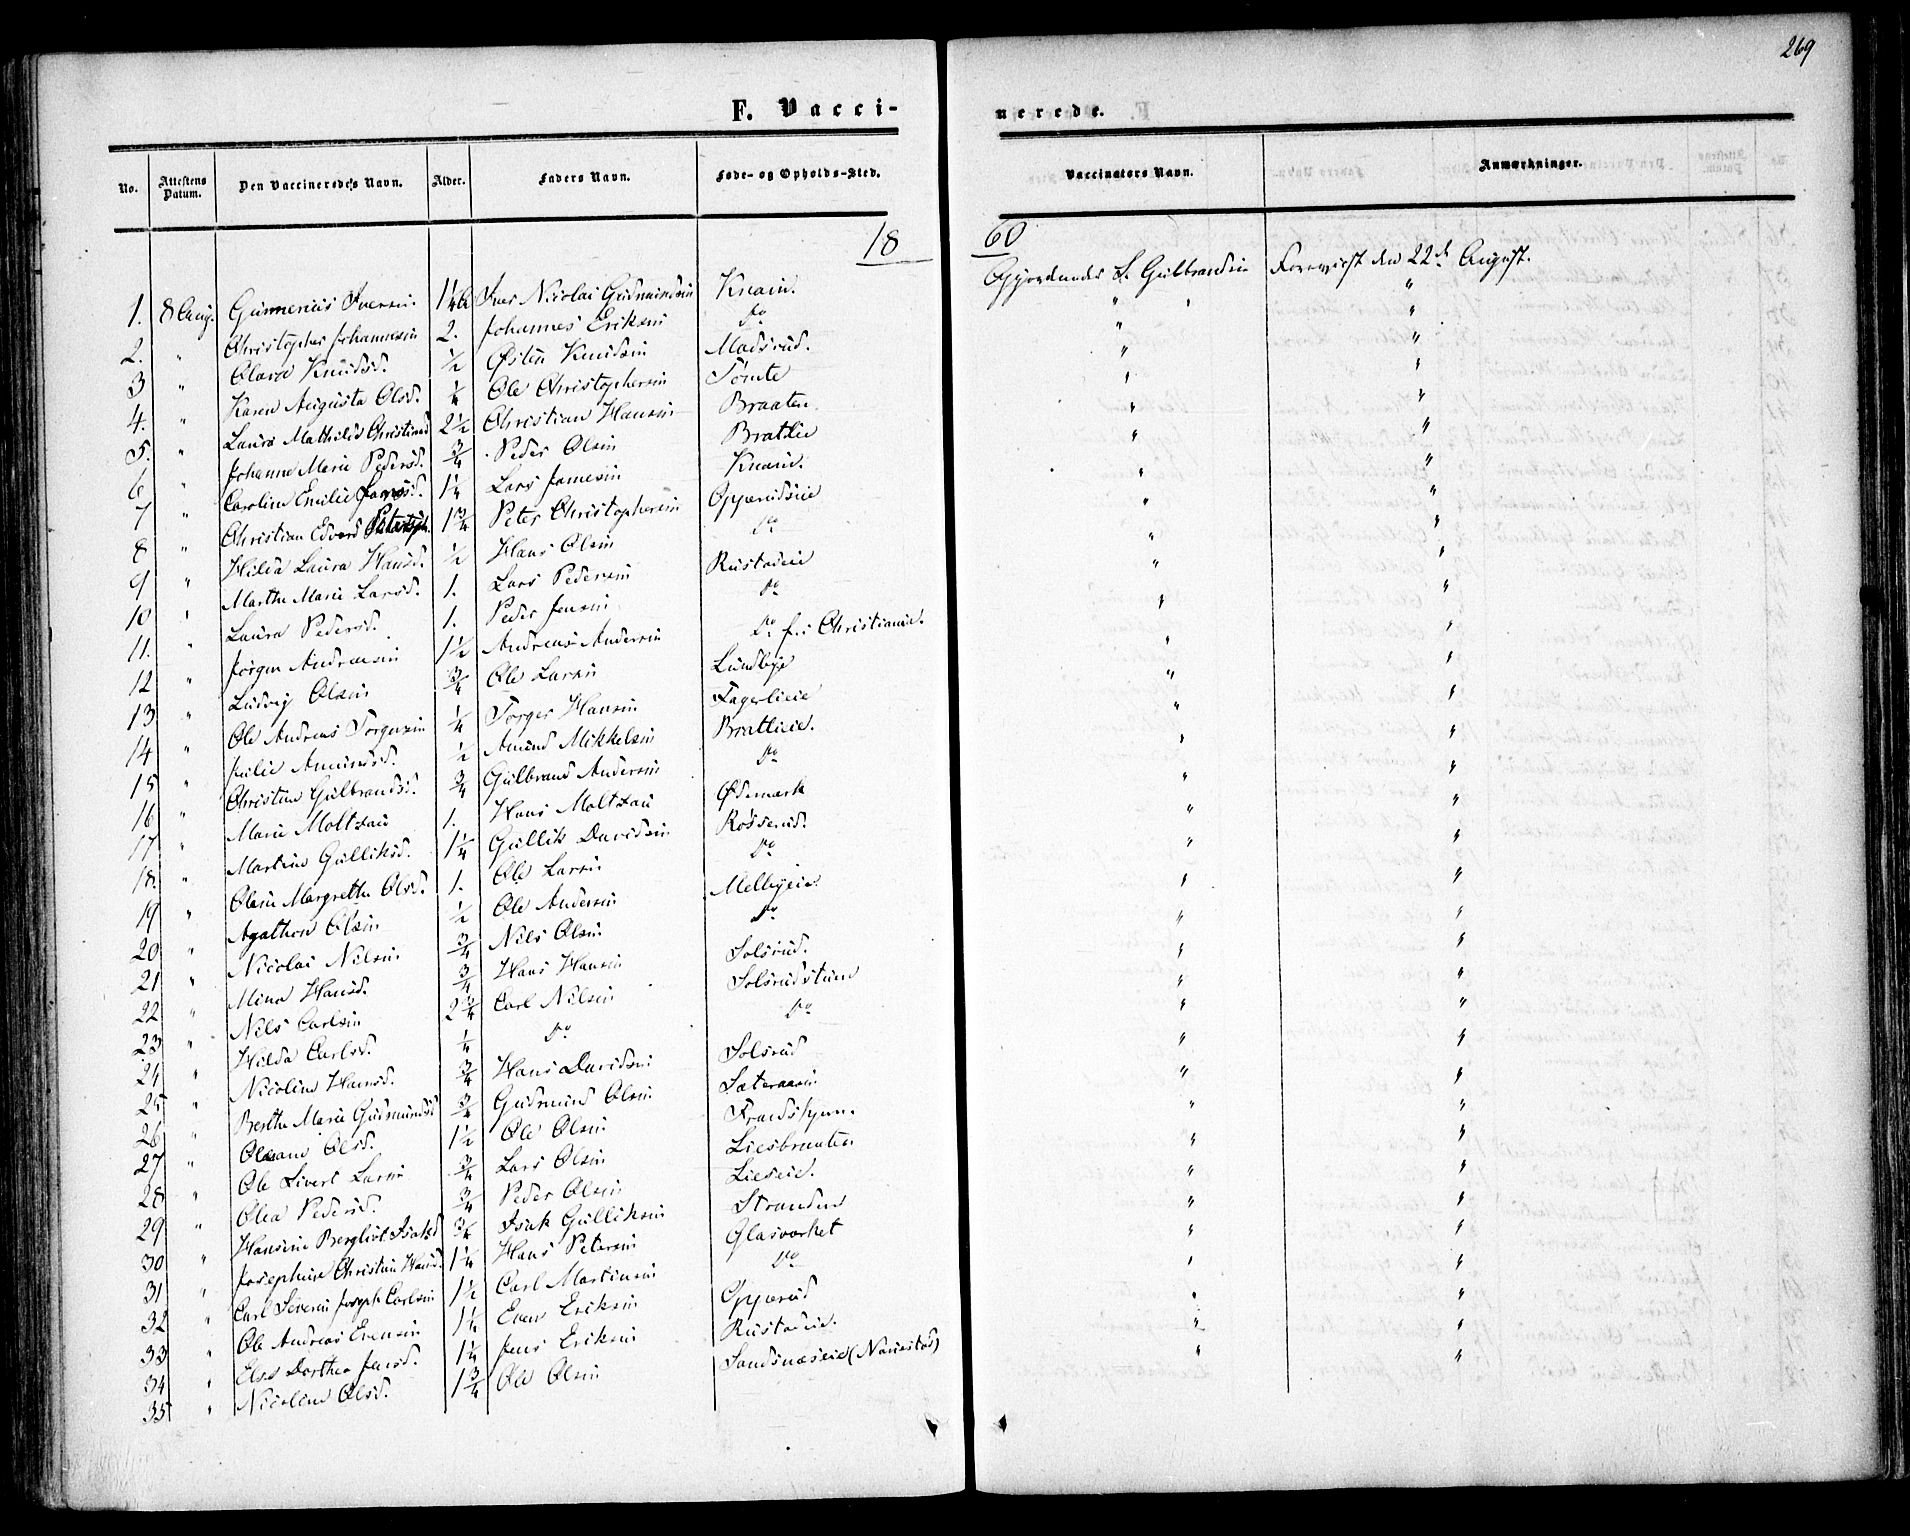 269
F. Vacci- nerede.
No. | Attestens Datum. | Den Vaccineredes Navn. | Alder. | Faders Navn. | Føde- og Opholds-Sted. | Vaccinators Navn. | Anmærkninger.
18 60
1. | 8 Aug. | Gunnenius Iversen. | 1 1/4 | Iver Nicolai Gudmundsen | Knarud. | Gjordemoder S. Gulbrandsen | Foreviist den 22de August.
2. | " | Christopher Johannesen | 2. | Johannes Eriksen | do | " | "
3 | " | Olava Knudsd. | 1/2 | Østen Knudsen | Madsrud. | " | "
4. | " | Karen Augusta Olsd. | 1/4 | Ole Christophersen | Tømte | " | "
5. | " | Laura Mathilde Christiansd | 2 1/2 | Christian Hansen | Braaten. | " | "
6 | " | Johanne Marie Pedersd. | 3/4 | Peder Olsen | Bratlie | " | "
7 | " | Caroline Emilie Larsd. | 1 1/4 | Lars Jamesen | Knarud. | " | "
8 | " | Christian Edvard Peterssøn. | 1 3/4 | Peter Christophersen | Opperudseie | " | "
9 | " | Hilda Laura Hansd. | 1/2 | Hans Olsen | do | " | "
10 | " | Marthe Marie Larsd. | 1. | Lars Pedersen | Rustadeie | " | "
11. | " | Laura Pedersd. | 1. | Peder Jensen | do | " | "
12 | " | Jørgen Andreasen | 1 1/2 | Andreas Andersen | do f. i Christiania. | " | "
13 | " | Ludvig Olsen | 3/4 | Ole Larsen | Lundbye | " | "
14 | " | Ole Andreas Torgersen | 1/4 | Torger Hansen | Fagerlieeie | " | "
15 | " | Julie Amundsd. | 1/2 | Amund Mikkelsen | Bratlieeie. | " | "
16 | " | Christine Gulbrandsd. | 3/4 | Gulbrand Andersen | do | " | "
17 | " | Marie Moltzau | 1. | Hans Moltzau | Ødemark | " | "
18. | " | Martine Gulliksd. | 1 1/4 | Gullik Davidsen | Røsserud. | " | "
19 | " | Olsine Margrethe Olsd. | 1. | Ole Larsen | do | " | "
20 | " | Agathon Olsen | 1/2 | Ole Andersen | Mellbyeeie | " | "
21 | " | Nicolai Nilsen. | 3/4 | Nils Olsen | do | " | "
22 | " | Mina Hansd. | 3/4 | Hans Hansen | Solsrud. | " | "
23 | " | Nils Carlsen | 2 3/4 | Carl Nilsen | Solsrudstuen | " | "
24 | " | Hilda Carlsd. | 1/4 | do | do | " | "
25 | " | Nicoline Hansd. | 3/4 | Hans Davidsen | Solsrud | " | "
26 | " | Berthe Marie Gudmundsd | 3/4 | Gudmund Olsen | Sæteraasen | " | "
27 | " | Oleane Olsd. | 1 1/2 | Ole Olsen | | " | "
28 | " | Ole Sivert Larsen | 3/4 | Lars Olsen | Liesbraaten | " | "
29 | " | Olea Pedersd. | 3/4 | Peder Olsen | Lieseie. | " | "
30 | " | Hansine Bergliot Isaksd | 3/4 | Isak Gulliksen | Stranden | " | "
31 | " | Josephine Christine Hansd. | 1 1/4 | Hans Petersen | Glasværket | " | "
32 | " | Carl Severin Joseph Carlsen | 1 1/2 | Carl Martinsen | do | " | "
33 | " | Ole Andreas Evensen | 1 1/4 | Even Eriksen | Opperud | " | "
34 | " | Else Dorthea Jensd. | 1 1/4 | Jens Eriksen | Rustadeie. | " | "
35 | " | Nicoline Olsd. | 1 3/4 | Ole Olsen | Sandsnæseie (Narestad) | " | "